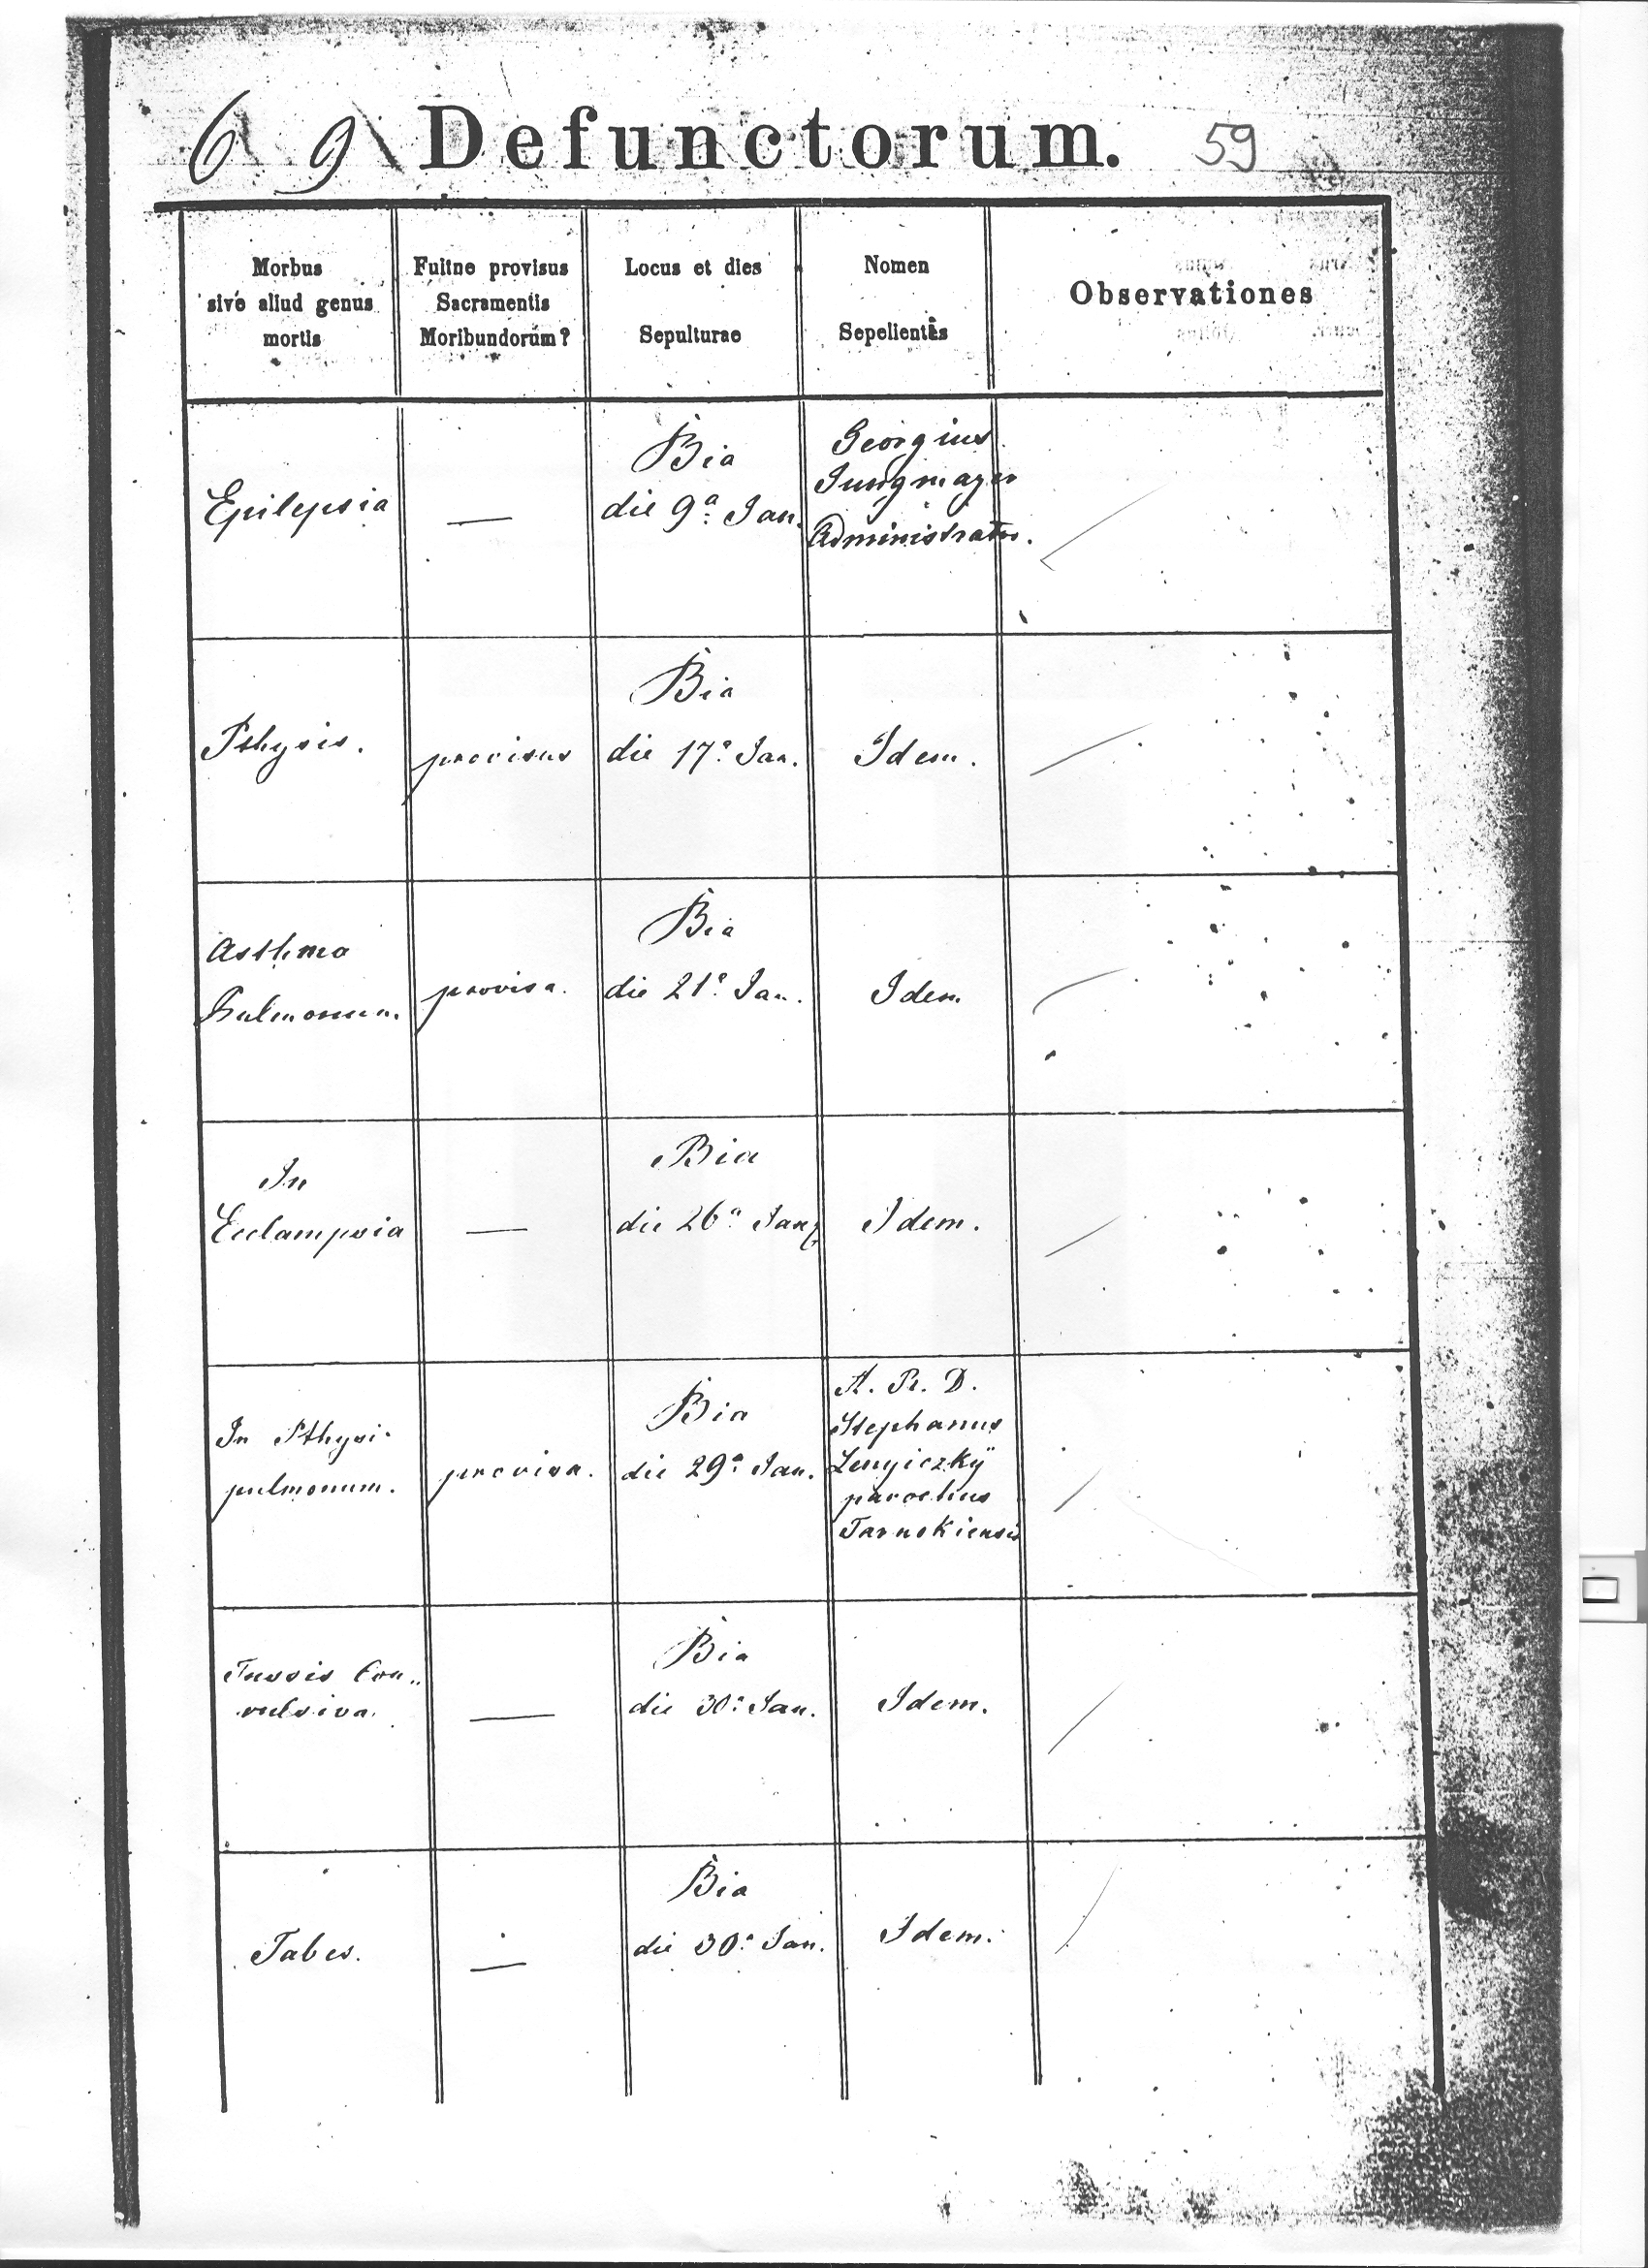 69 Defunctorum. 59
Morbus
sive aliud genus
mortis
Fuitne provisus
Sacramentis
Moribundorum?
Locus et dies
Sepulturae
Nomen
Sepelientis
Observationes
Epilepsia
—
Bia
die 9ª Jan.
Georgius
Jungmayer
Administrator.
Pthysis.
provisus
Bia
die 17ª Jan.
Idem.
Asthma
Pulmonum.
provisa.
Bia
die 21ª Jan.
Idem
In
Ecclampsia
—
Bia
die 26ª Jan
Idem.
In Pthysi
pulmonum.
provisa.
Bia
die 29ª Jan.
A. R. D.
Stephanus
parochus
Tarnokiensis
Tussis Con„
vulsiva.
—
Bia
die 30ª Jan.
Idem.
Tabes.
—
Bia
die 30ª Jan.
Idem.